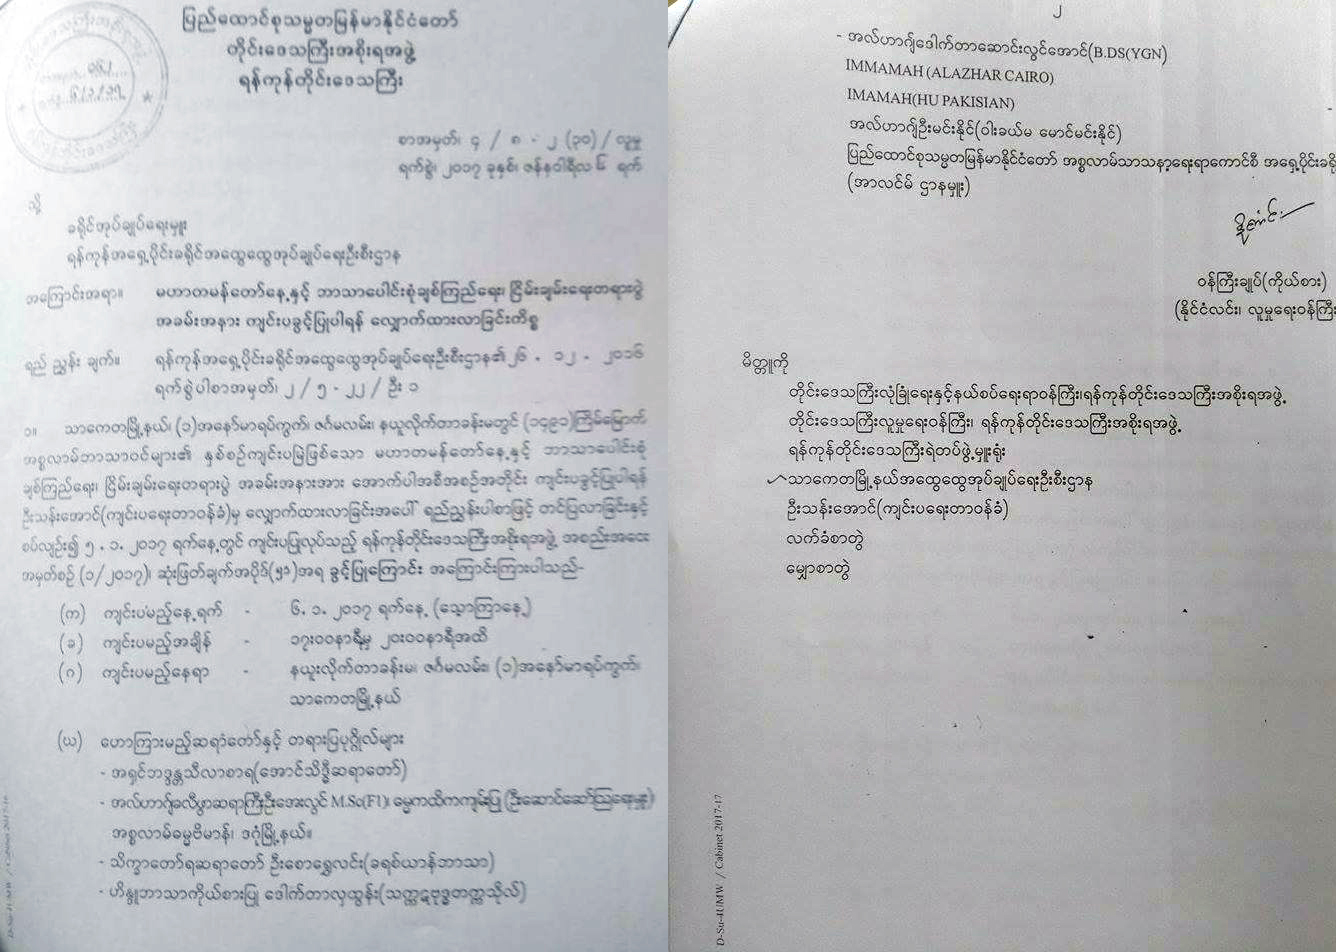 ပြည်ထောင်စုသမ္မတမြန်မာနိုင်ငံတော်
တိုင်းဒေသကြီးအစိုးရအဖွဲ့
ရန်ကုန်တိုင်းဒေသကြီး
စာအမှတ်၊ ၄ / ၈ - ၂ (၃၀) / လူမှု
ရက်စွဲ၊ ၂၀၁၇ ခုနှစ်၊ ဇန်နဝါရီလ ၆ ရက်
သို့
ခရိုင်အုပ်ချုပ်ရေးမှူး
ရန်ကုန်အရှေ့ပိုင်းခရိုင်အထွေထွေအုပ်ချုပ်ရေးဦးစီးဌာန
အကြောင်းအရာ။ မဟာတမန်တော်နေ့နှင့် ဘာသာပေါင်းစုံချစ်ကြည်ရေး၊ ငြိမ်းချမ်းရေးတရားပွဲ
အခမ်းအနား ကျင်းပခွင့်ပြုပါရန် လျှောက်ထားလာခြင်းကိစ္စ
ရည် ညွှန်း ချက်။ ရန်ကုန်အရှေ့ပိုင်းခရိုင်အထွေထွေအုပ်ချုပ်ရေးဦးစီးဌာန၏ ၂၆ . ၁၂ . ၂၀၁၆
ရက်စွဲပါစာအမှတ်၊ ၂ / ၅ - ၂၂ / ဦး ၁
၁။ သာကေတမြို့နယ်၊ (၁)အနော်မာရပ်ကွက်၊ ဇင်္ဂမလမ်း၊ နယူလိုက်တာခန်းမတွင် (၁၄၉၁)ကြိမ်မြောက်
အစ္စလာမ်ဘာသာဝင်များ၏ နှစ်စဉ်ကျင်းပမြဲဖြစ်သော မဟာတမန်တော်နေ့နှင့် ဘာသာပေါင်းစုံ
ချစ်ကြည်ရေး၊ ငြိမ်းချမ်းရေးတရားပွဲ အခမ်းအနားအား အောက်ပါအစီအစဉ်အတိုင်း ကျင်းပခွင့်ပြုပါရန်
ဦးသန်းအောင်(ကျင်းပရေးတာဝန်ခံ)မှ လျှောက်ထားလာခြင်းအပေါ် ရည်ညွှန်းပါစာဖြင့် တင်ပြလာခြင်းနှင့်
စပ်လျဉ်း၍ ၅ . ၁ . ၂၀၁၇ ရက်နေ့တွင် ကျင်းပပြုလုပ်သည့် ရန်ကုန်တိုင်းဒေသကြီးအစိုးရအဖွဲ့ အစည်းအဝေး
အမှတ်စဉ် (၁/၂၀၁၇)၊ ဆုံးဖြတ်ချက်အပိုဒ်(၅၁)အရ ခွင့်ပြုကြောင်း အကြောင်းကြားပါသည်-
(က) ကျင်းပမည့်နေ့ရက် - ၆. ၁. ၂၀၁၇ ရက်နေ့ (သောကြာနေ့)
(ခ) ကျင်းပမည့်အချိန် - ၁၇း၀၀နာရီမှ ၂၀း၀၀နာရီအထိ
(ဂ) ကျင်းပမည့်နေရာ - နယူးလိုက်တာခန်းမ၊ ဇင်္ဂမလမ်း၊ (၁)အနော်မာရပ်ကွက်၊
သာကေတမြို့နယ်
(ဃ) ဟောကြားမည့်ဆရာတော်နှင့် တရားပြပုဂ္ဂိုလ်များ
- အရှင်ဘဒ္ဒန္တသီလာစာရ(အောင်သိဒ္ဓိဆရာတော်)
- အလ်ဟာဂျ်ခလီဖွာဆရာကြီးဦးအေးလွင် M.Sc(F1)၊ ဓမ္မကထိကကျမ်းပြု
အစ္စလာမ်ဓမ္မဗိမာန်၊ ဒဂုံမြို့နယ်။
- သိက္ခာတော်ရဆရာတော် ဦးစောရွှေလင်း(ခရစ်ယာန်ဘာသာ)
- ဟိန္ဒူဘာသာကိုယ်စားပြု ဒေါက်တာလှထွန်း(သက္ကဋဗုဒ္ဓတက္ကသိုလ်)
၂
- အလ်ဟာဂျ်ဒေါက်တာဆောင်းလွင်အောင်(B.DS(YGN)
IMMAMAH (ALAZHAR CAIRO)
IMAMAH(HU PAKISIAN)
အလ်ဟာဂျ်ဦးမင်းနိုင်(ဝါးခယ်မ မောင်မင်းနိုင်)
ပြည်ထောင်စုသမ္မတမြန်မာနိုင်ငံတော် အစ္စလာမ်သာသနာ့ရေးရာကောင်စီ အရှေ့ပိုင်းခရို
(အာလင်မ် ဌာနမှူး)
ဝန်ကြီးချုပ်(ကိုယ်စား)
(နိုင်ငံလင်း၊ လူမှုရေးဝန်ကြီး
မိတ္တူကို
တိုင်းဒေသကြီးလုံခြုံရေးနှင့်နယ်စပ်ရေးရာဝန်ကြီး၊ရန်ကုန်တိုင်းဒေသကြီးအစိုးရအဖွဲ့
တိုင်းဒေသကြီးလူမှုရေးဝန်ကြီး၊ ရန်ကုန်တိုင်းဒေသကြီးအစိုးရအဖွဲ့
ရန်ကုန်တိုင်းဒေသကြီးရဲတပ်ဖွဲ့မှူးရုံး
သာကေတမြို့နယ်အထွေထွေအုပ်ချုပ်ရေးဦးစီးဌာန
ဦးသန်းအောင်(ကျင်းပရေးတာဝန်ခံ)
လက်ခံစာတွဲ
မျှောစာတွဲ
D-Su-4UMW / Cabinet 2017-17